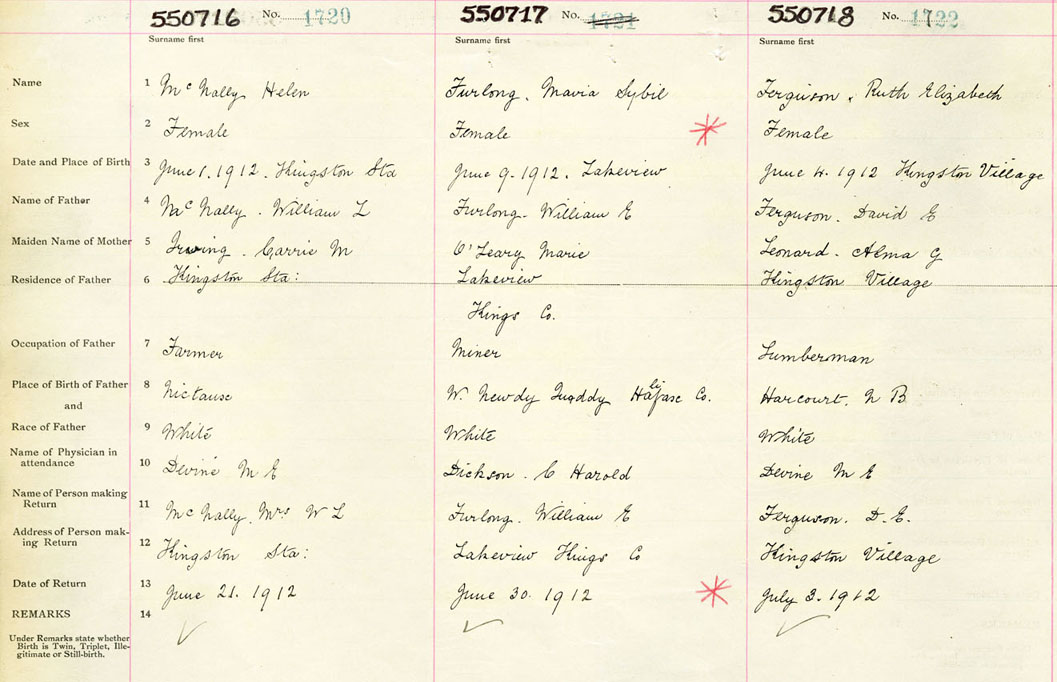 550716 No. 1720 550717 No. 1721 550718 No. 1722
Surname first Surname first Surname first
Name 1 Mc Nally Helen Furlong. Mavia Sybil Ferguson, Ruth Elizabeth
Sex 2 Female Female Female
Date and Place of Birth 3 June 1. 1912. Kingston Sta June 9. 1912. Lakeview June 4. 1912 Kingston Village
Name of Father 4 Mc Nally. William L Furlong. William E Ferguson. David E
Maiden Name of Mother 5 Irwing. Carrie M O'Leary Marie Leonard. Alma G
Residence of Father 6 Kingston Sta: Lakeview Kingston Village
Kings Co.
Occupation of Father 7 Farmer Miner Lumberman
Place of Birth of Father 8 Nictause W. Newdy Quoddy Halifax Co. Harcourt. N B
and
Race of Father 9 White White White
Name of Physician in
attendance 10 Devine M E Dickson. C Harold Devine M E
Name of Person making
Return 11 Mc Nally, Mrs W L Furlong. William E Ferguson. D. E.
Address of Person mak-
ing Return 12 Kingston Sta: Lakeview Kings Co Kingston Village
Date of Return 13 June 21. 1912 June 30. 1912 July 3. 1912
REMARKS 14
Under Remarks state whether
Birth is Twin, Triplet, Ille-
gitimate or Still-birth.